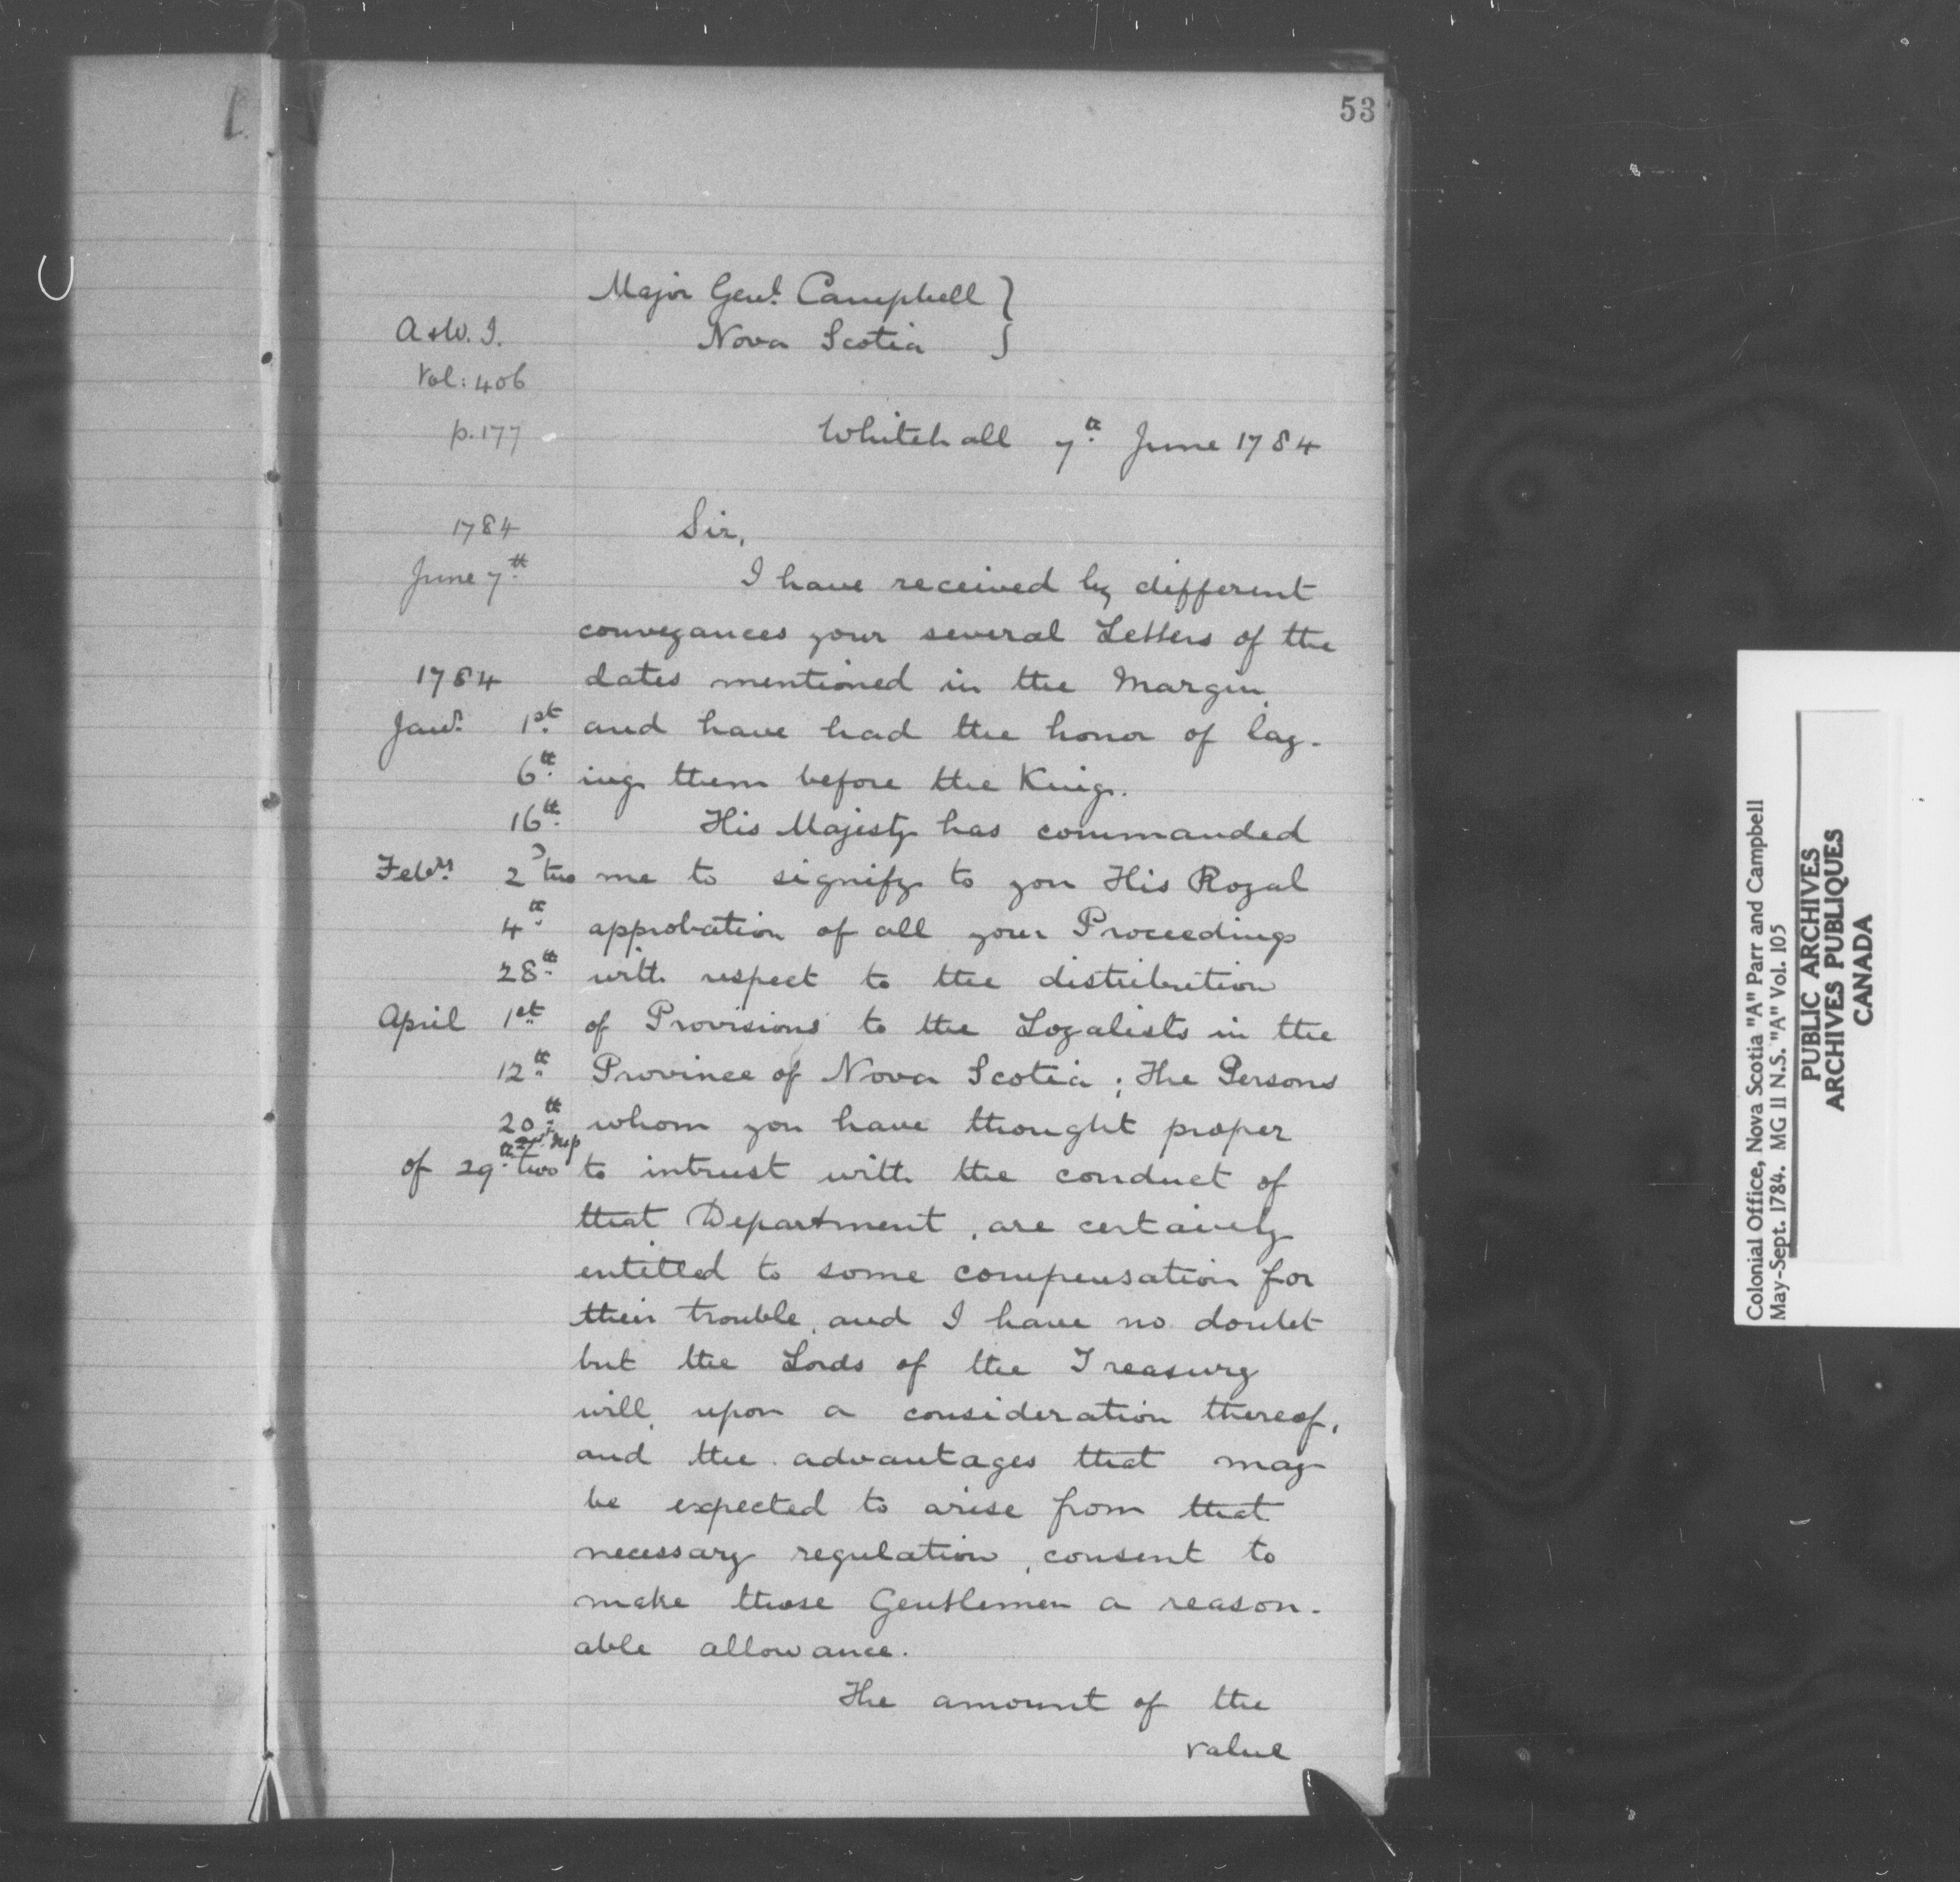 53
Major Genl. Campbell }
Nova Scotia }
A & W. I.
Vol: 406
p. 177
Whitehall 7th June 1784
1784
June 7th
Sir,
I have received by different
conveyances your several Letters of the
1784 dates mentioned in the Margin,
Jany. 1st and have had the honor of lay-
6th ing them before the King.
16th His Majesty has commanded
Feby. 2d two me to signify to you His Royal
4th approbation of all your Proceedings
28th with respect to the distribution
April 1st of Provisions to the Loyalists in the
12th Province of Nova Scotia; The Persons
20th whom you have thought proper
of 29th two to intrust with the conduct of
that Department, are certainly
entitled to some compensation for
their trouble, and I have no doubt
but the Lords of the Treasury
will, upon a consideration thereof,
and the advantages that may
be expected to arise from that
necessary regulation, consent to
make those Gentlemen a reason-
able allowance.
The amount of the
value
Colonial Office, Nova Scotia "A" Parr and Campbell
May-Sept. 1784. MG 11 N.S. "A" Vol. 105
PUBLIC ARCHIVES
ARCHIVES PUBLIQUES
CANADA